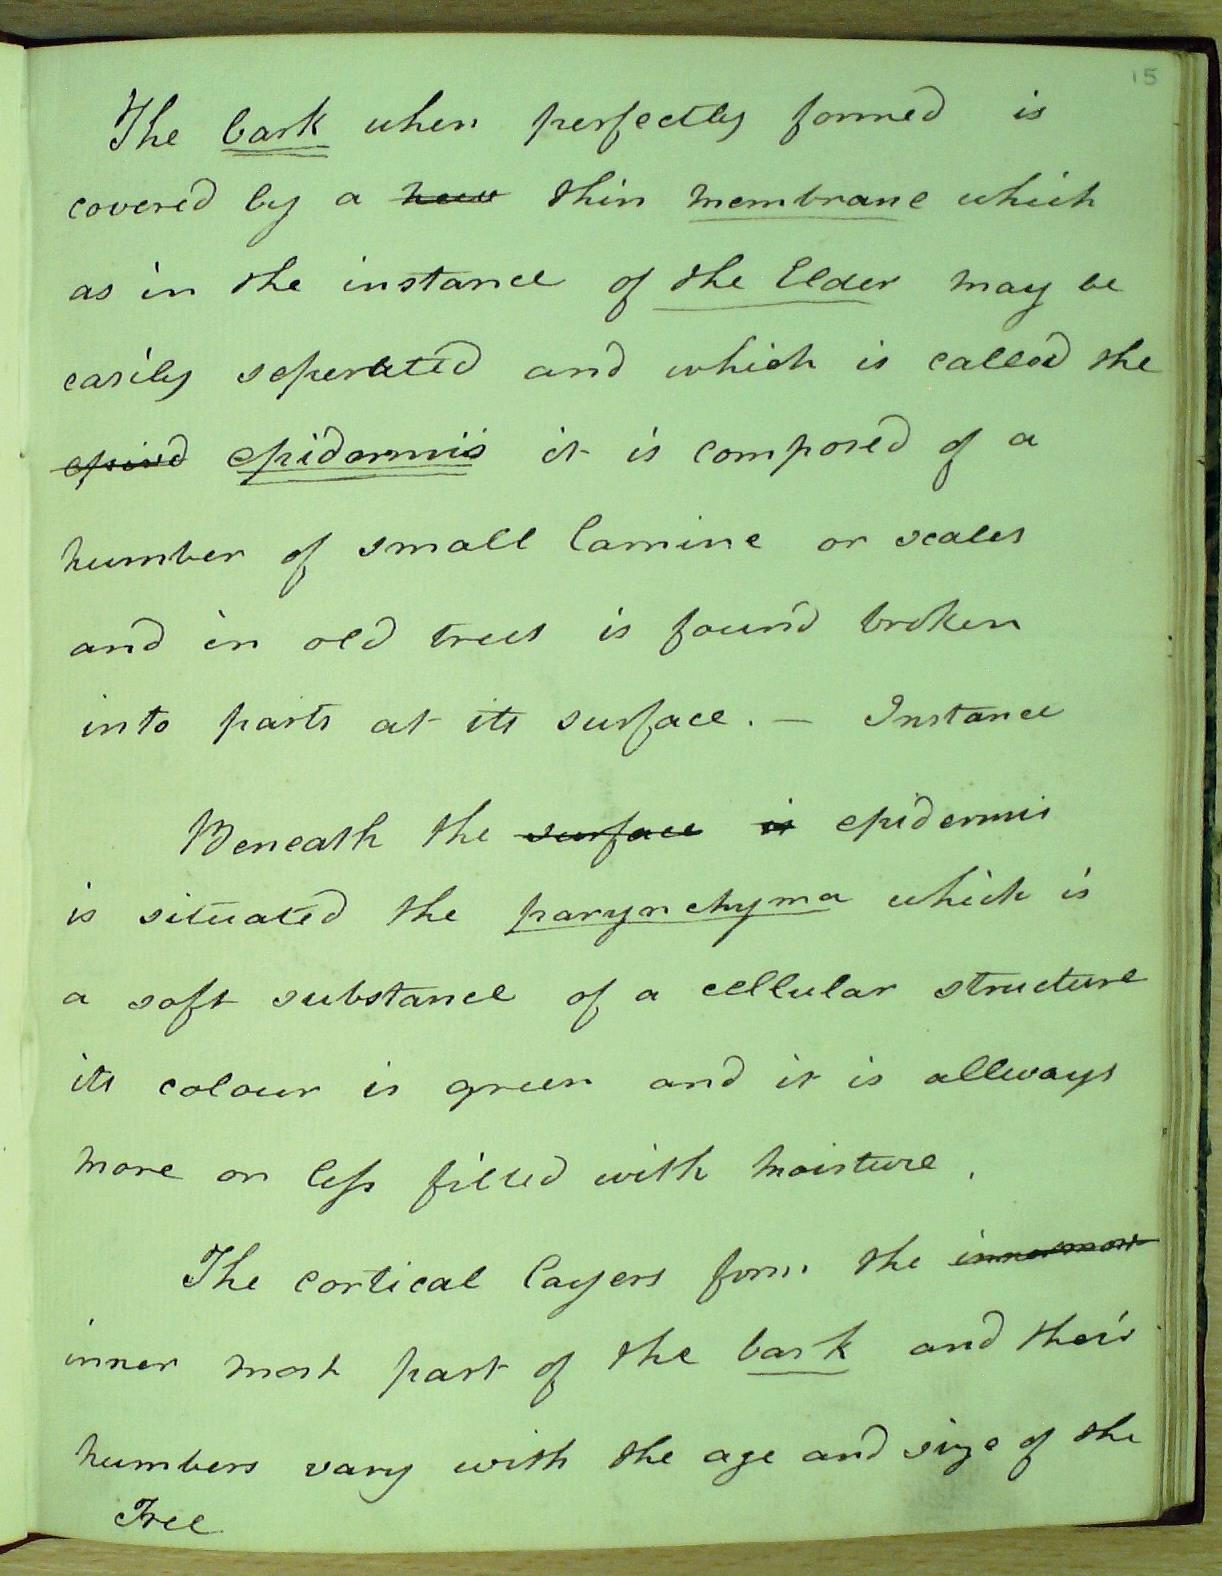 15
The bark when perfectly formed is
covered by a new thin membrane which
as in the instance of the Elder may be
easily seperated and which is called the
epived epidermis it is composed of a
number of small lamine or scales
and in old trees is found broken
into parts at its surface. — Instance
Beneath the surface is epidermis
is situated the parynchyma which is
a soft substance of a cellular structure
its colour is green and it is allways
more or less filled with moisture.
The cortical layers form the innermost
inner most part of the bark and their
numbers vary with the age and size of the
Tree